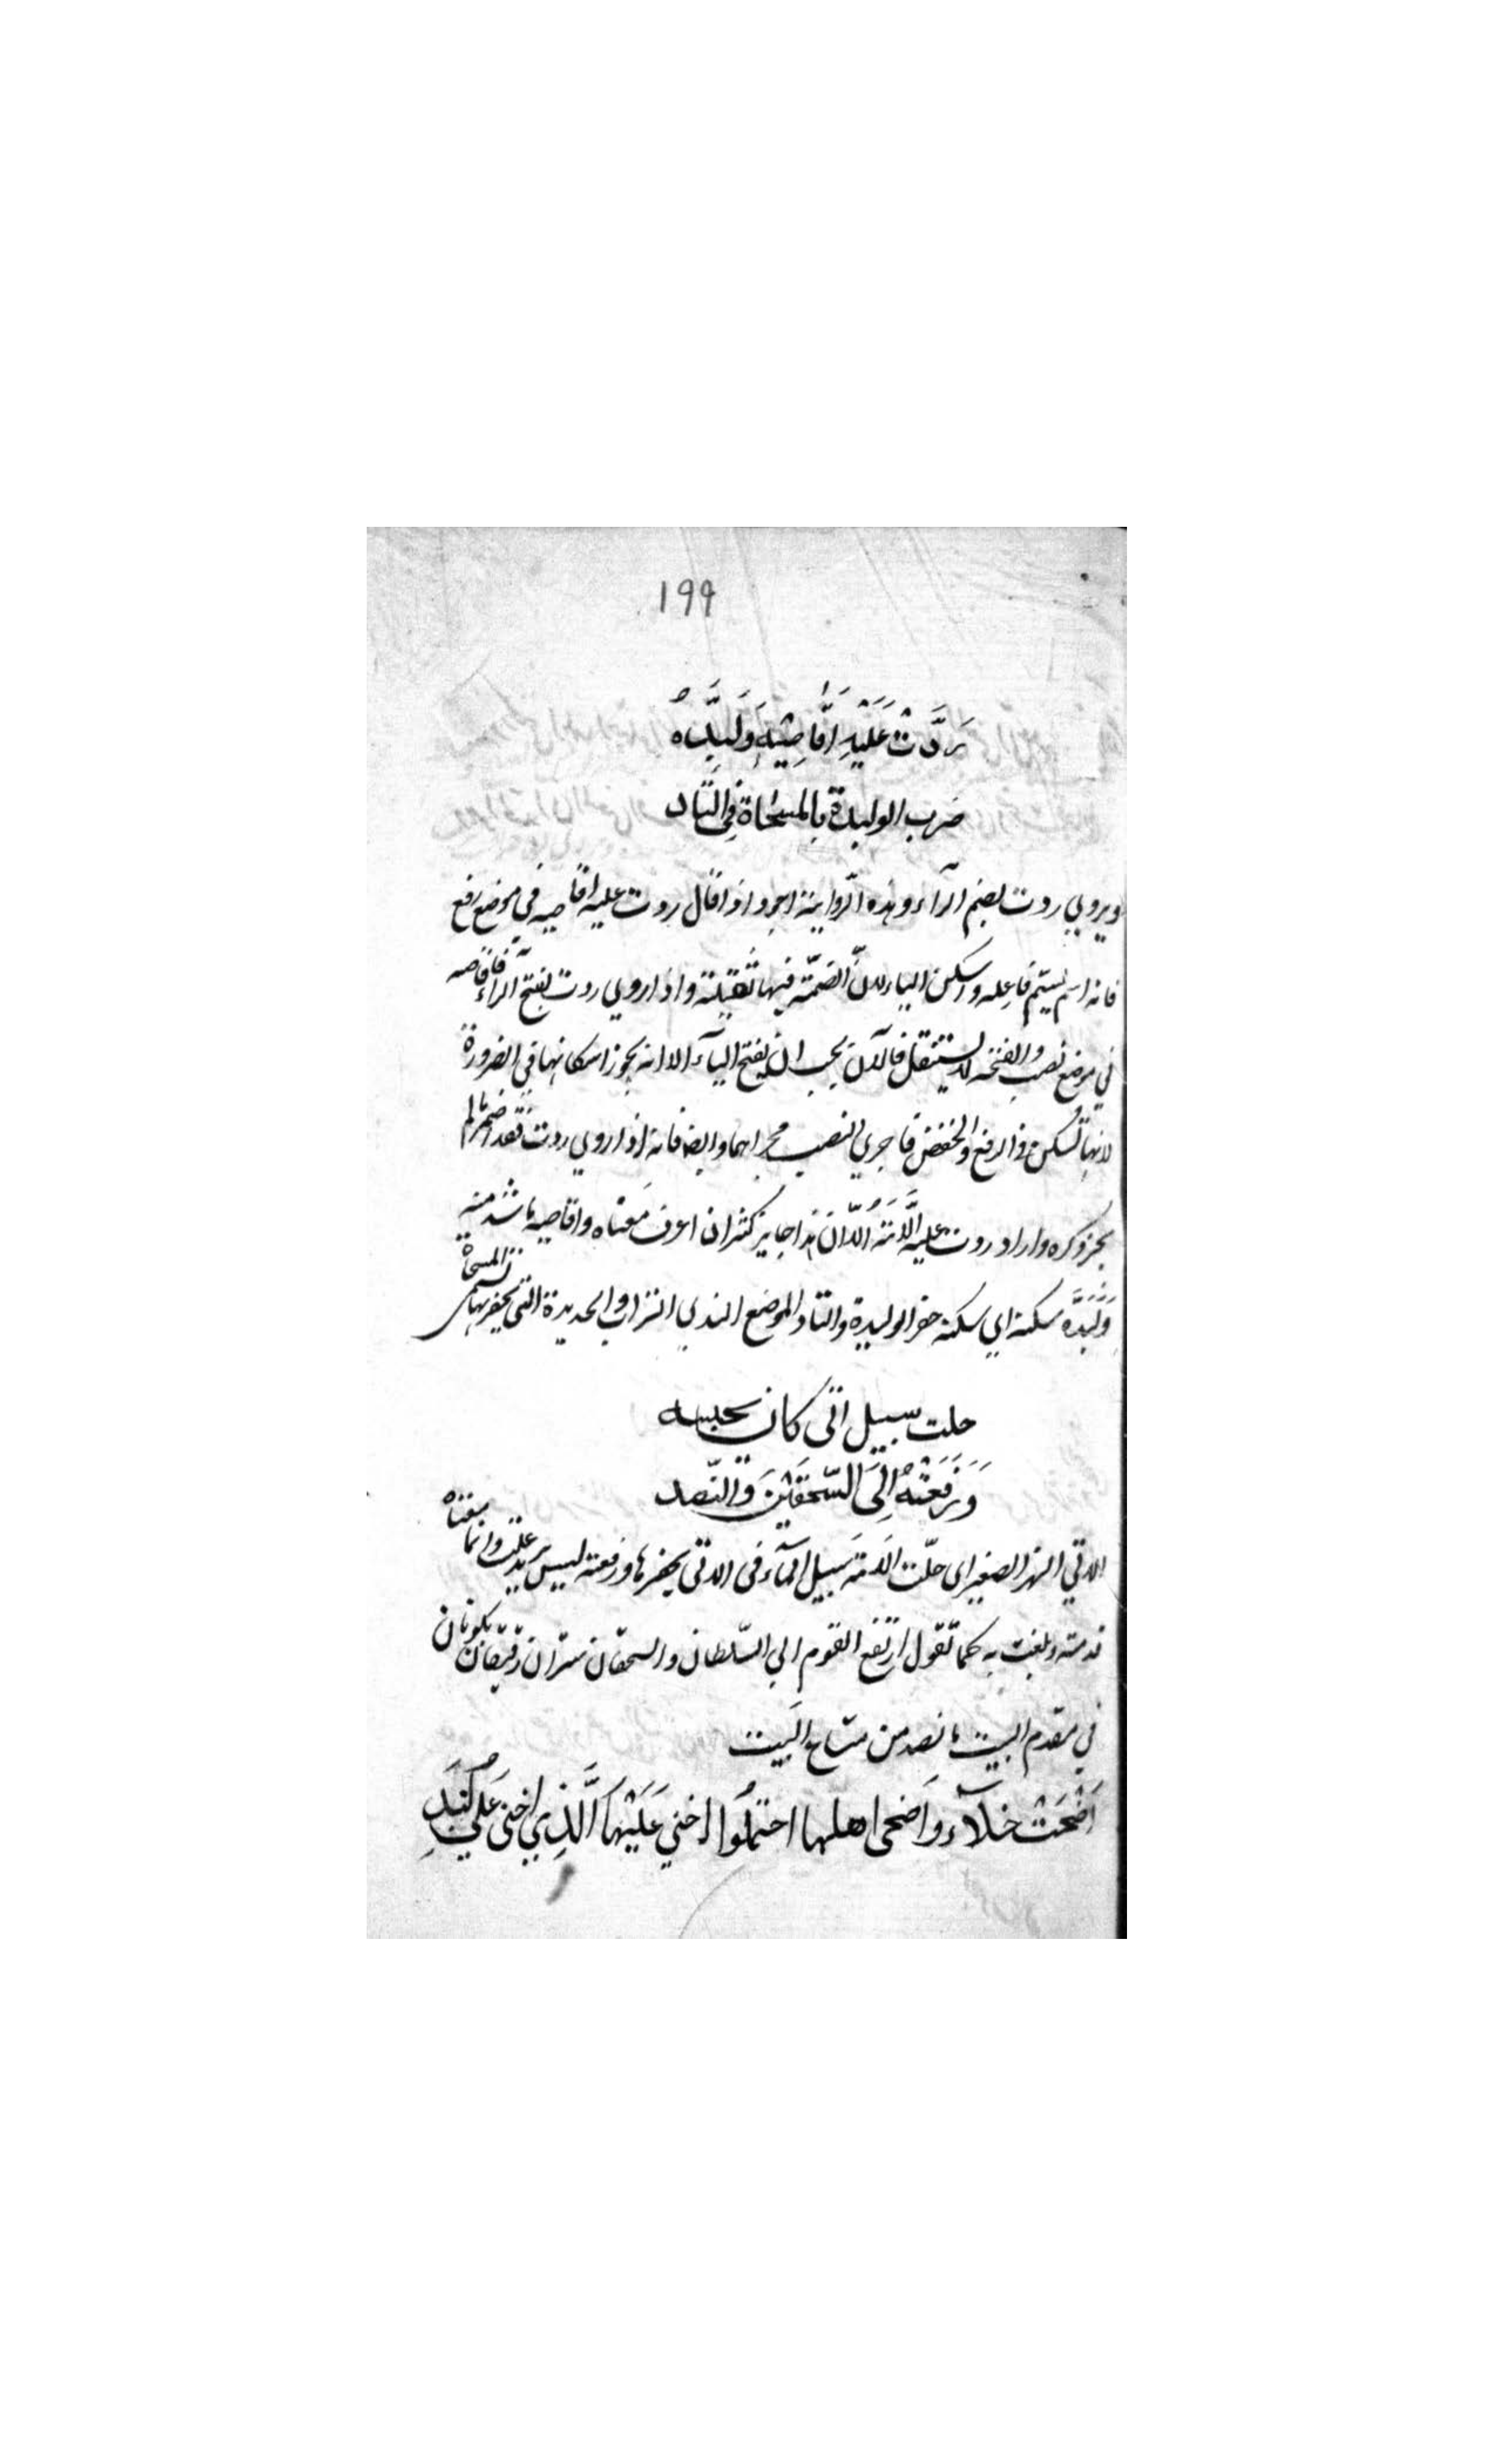 199
رَدَّتْ عَلَيْهِ اَقَاصِيْهِ وَلَبَّدَهُ
ضرب الوليدة بالمسحاة في الثاد
ويروي ردت بضم الرآء وهذه الروايتة اجود اذا قال ردت عليه اقاصيه في موضع رفع
فانه اسم يسّم فاعله واسكن الياء لانّ الضمّة فيها ثقيلة واذا روي ردت بفتح الراء فاقاصيه
في موضع نصب والفتحة لا يستثقل فالآن يجب ان يفتح اليآء الا انه يجوز اسكانها في الضرورة
لانها تسكن في الرفع والخفض فاجري النصب مجراهما وايضا فانه اذا روي ردت فقد اضمر ما لم
يجز ذكره واراد ردت عليه الامَة الّا ان هذا جايز كثير ان اعرف معناه واقاصيه ما شد منه
وَلَبَّدَه سكنه اي سكنه حفر الوليدة والثاد الموضع الندي التراب والحديدة التي يحفر بها تسمى المسحاة
خلت سبيل اتى كان يحبسه
وَرَفَعَتْهُ اِلَى السّجفَيْن فَالنّضد
الاتي النهر الصغير اى خلّت الامة سبيل المآء فى الاتى يحفرها ورفعته ليس يريد علت وانما معناه
قدمته وبلغت به كما تقول ارتفع القوم الي السّلطان والسجفان ستران رقيقان يكونان
في مقدم البيت ما نضد من متاع البيت
اَضْحَتْ خلآءً واَضحى اهلها احتملُوا اخنى عَلَيْها الَّذِي اخنى عَلَى لُبَدِ